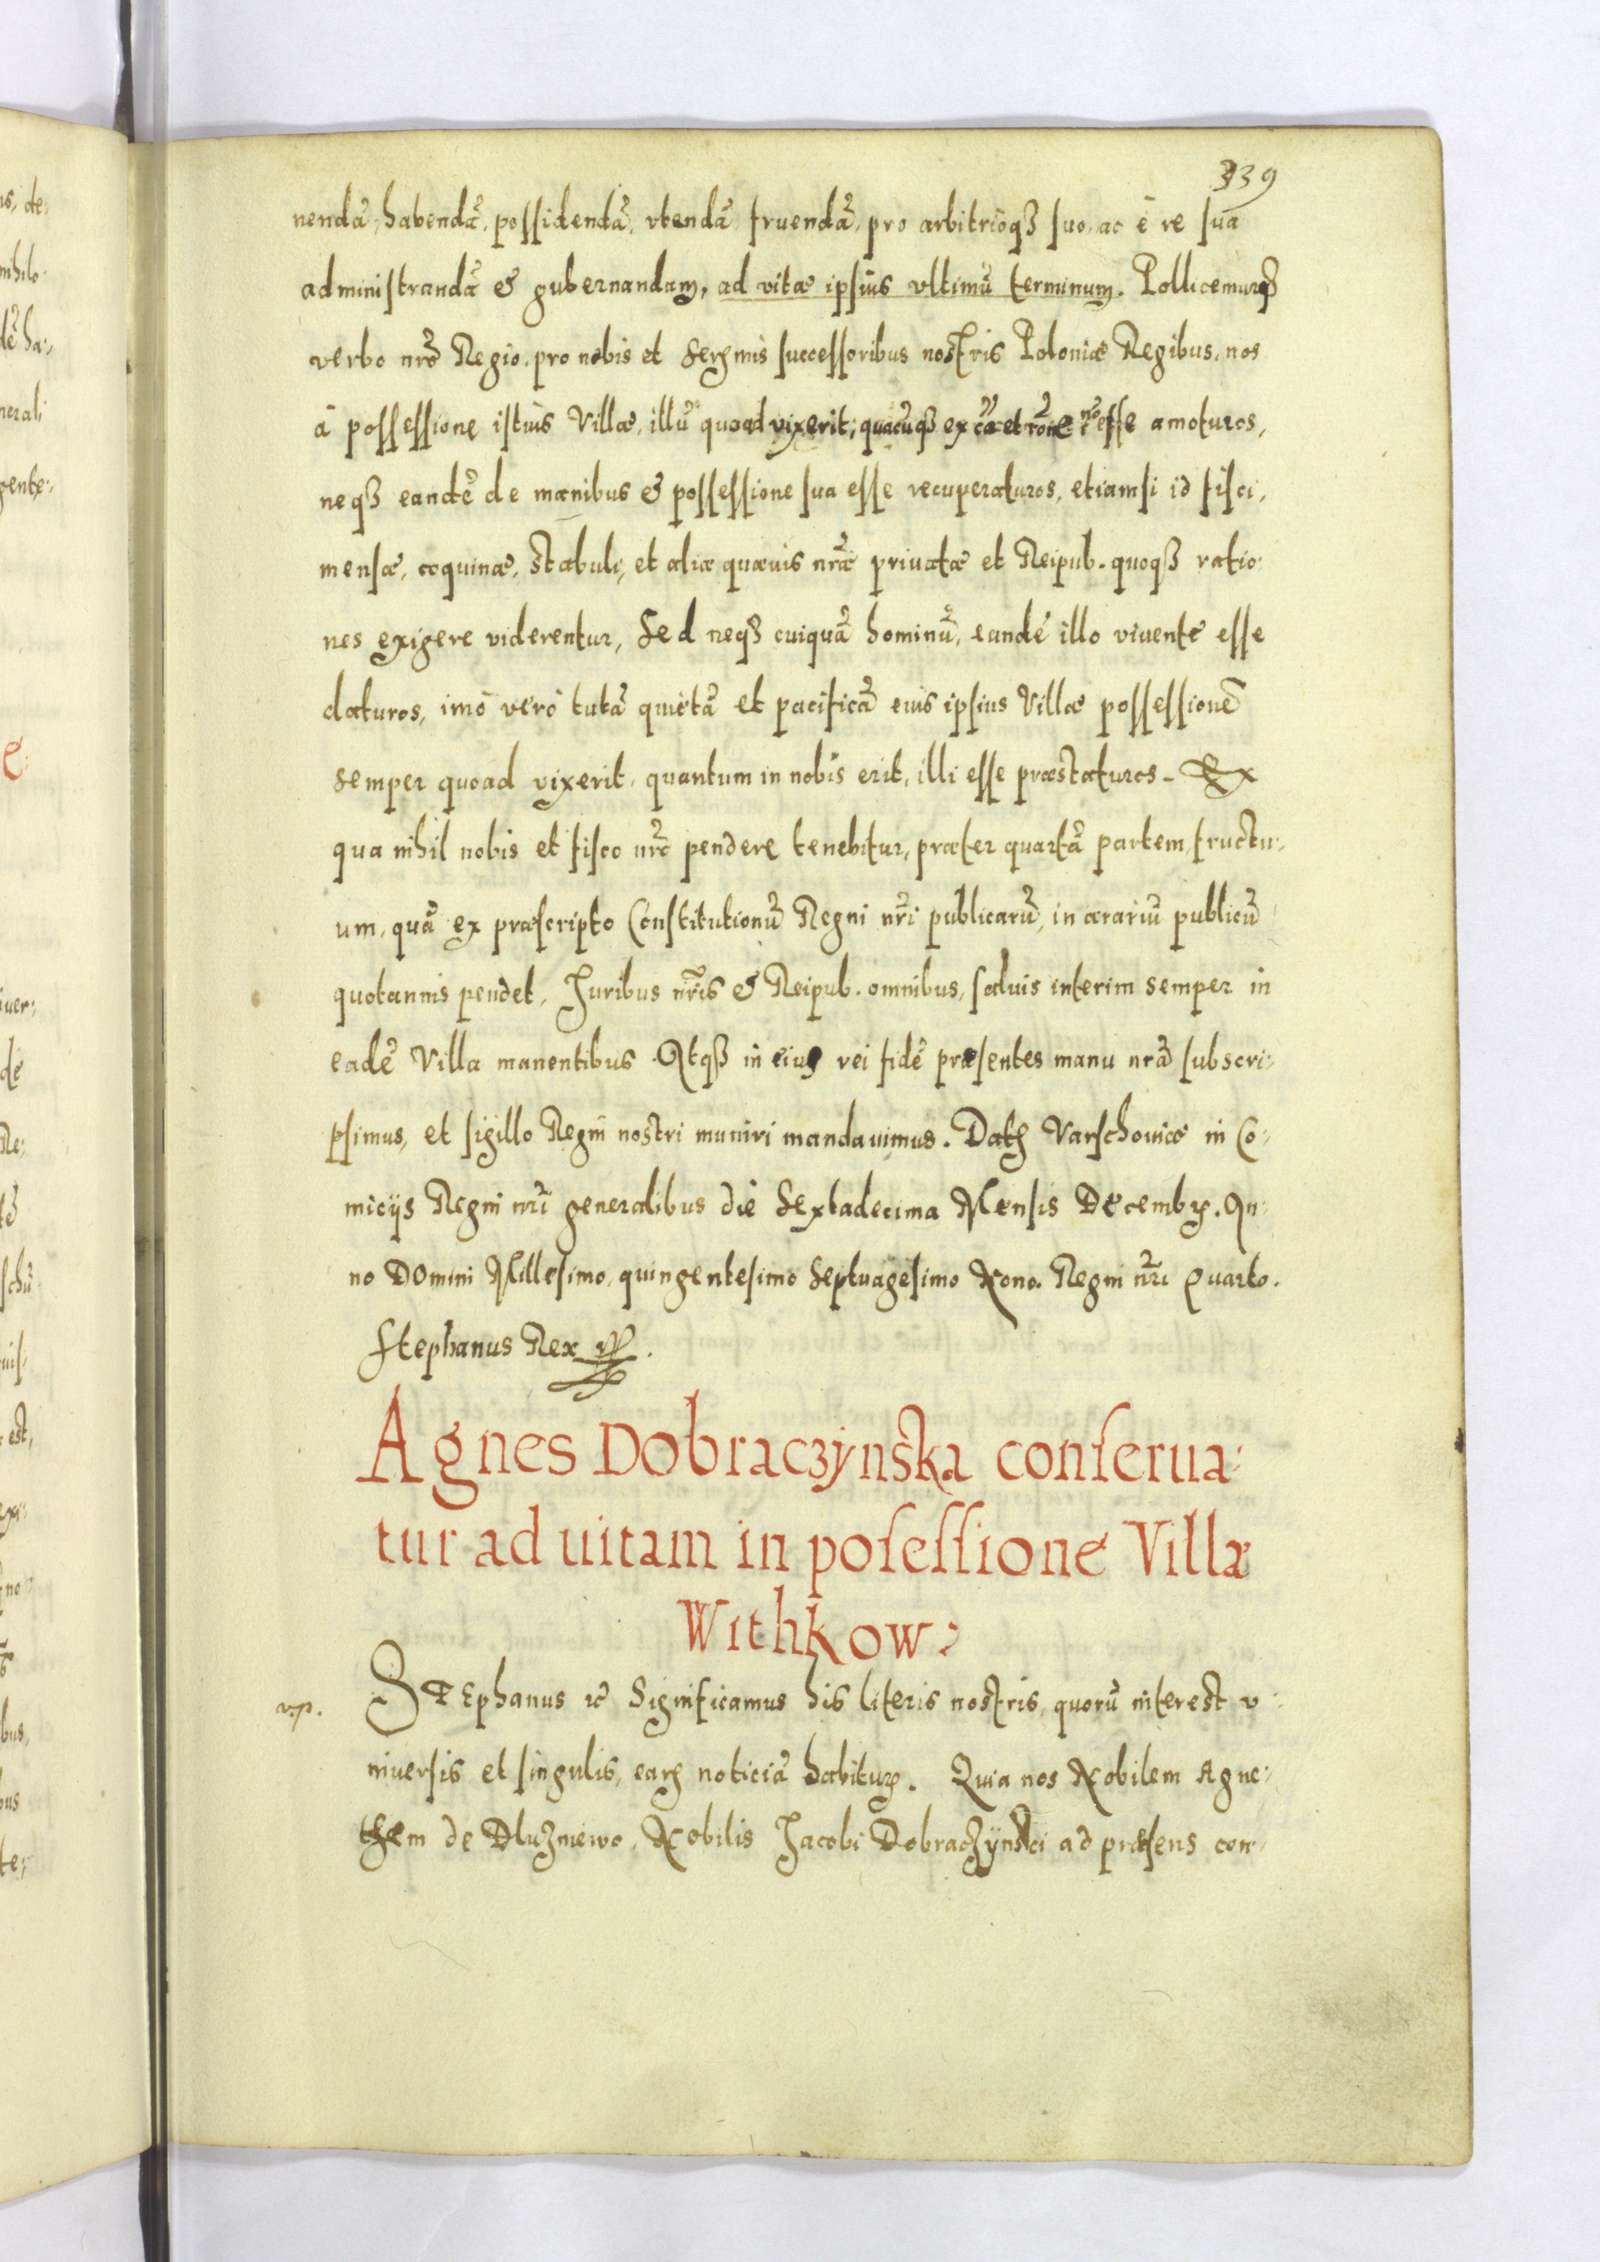 339
nendā, habendā, possidendā, vtendā fruendā, pro arbitrioq₃ suo, ac è re sua
administrandā & gubernandam, ad vitæ ipsius vltimū terminum. Pollicemurq₃
verbo nrō Regio, pro nobis et Serꝫmis successoribus nostris Poloniæ Regibus, nos
à possessione istius Villæ, illū quoad vixerit, quacūq₃ ex cā et rōne nō esse amoturos,
neq₃ eandē de manibus & possessione sua esse recuperaturos, etiamsi id fisci,
mensæ, coquinæ, stabuli, et aliæ quævis nrǣ priuatæ et Reipub. quoq₃ ratio-
nes exigere viderentur, Sed neq₃ cuiquā hominū, eandē illo viuente esse
daturos, imò verò tutā quietā et pacificā eius ipsius Villæ possessionē
semper quoad vixerit, quantum in nobis erit, illi esse præstaturos. Ex
qua nihil nobis et fisco nrō pendere tenebitur, præter quartā partem fructu-
um, quā ex præscripto Constitutionū Regni nrī publicarū, in ærariū publicū
quotannis pendet, Juribus nrīs & Reipub. omnibus, saluis interim semper in
eadē Villa manentibus. Atq₃ in eius rei fidē præsentes manu nrā subscri-
psimus, et sigillo Regni nostri muniri mandauimus. Datꝫ Varschouiæ in Co-
micijs Regni nrī generalibus die Sextadecima Mensis Decembꝝ. An-
no Domini Millesimo, quingentesimo Septuagesimo Nono. Regni nrī Quarto.
Stephanus Rex
Agnes Dobraczÿnska conserua-
tur ad uitam in posessione Villæ
Withkow:
STEphanus ꝛc̄ Significamus his literis nostris, quorū interest v-
niuersis et singulis, earꝫ noticiā habiturꝫ. Quia nos Nobilem Agne-
them de Dluzniewo, Nobilis Jacobi Dobraczÿnski ad præsens con-